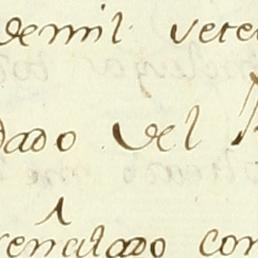 demil vete
dado del
renculado con